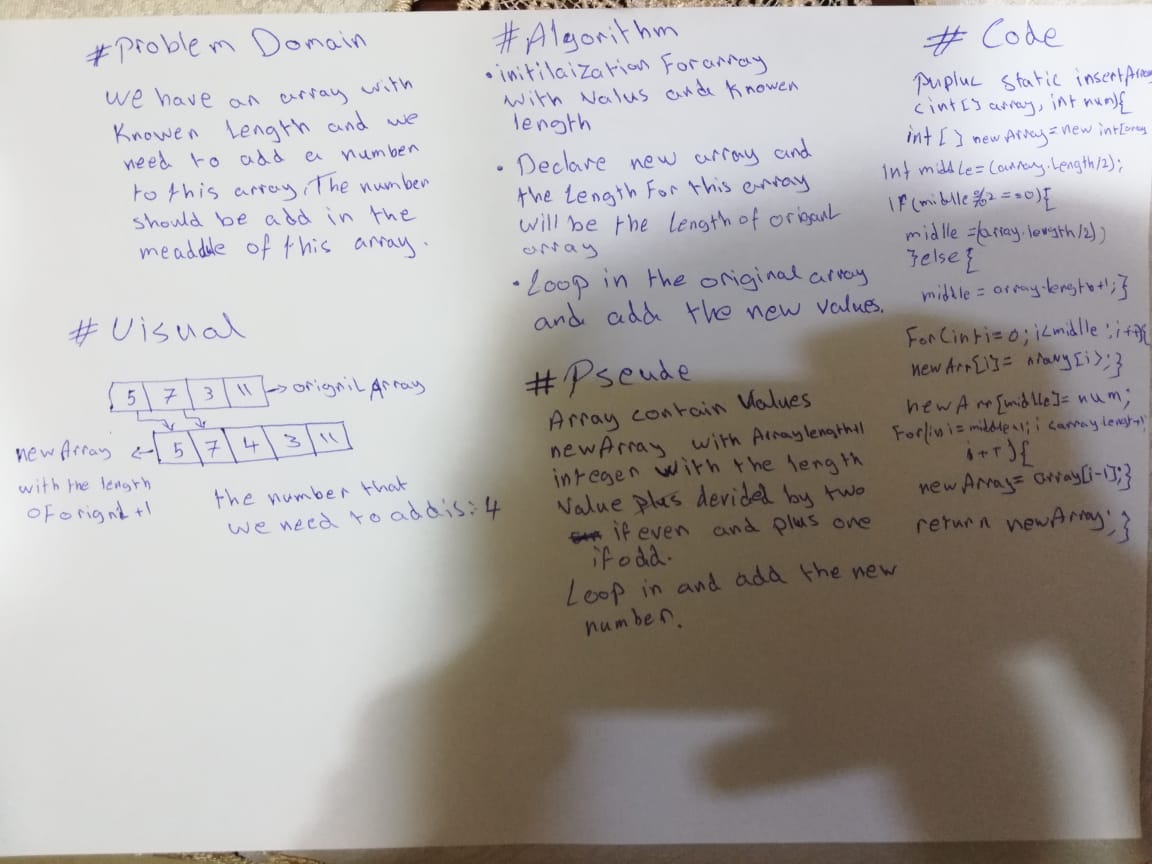 #Problem Domain
we have an array with
Knowen Length and we
need to add a number
to this array, The number
should be add in the
meaddule of this array.
# Visual
5 7 3 11 → orignil Array
newArray ← 5 7 4 3 11
with the length
OF orignil +1
the number that
we need to add is: 4
#Algorithm
• initilaization For array
with Valus ande Knowen
length
• Declare new array and
the Length For this array
will be the Length of
array
• Loop in the original array
and adde the new values.
# Pseude
Array contain Values
newArray with Arraylength+1
integer with the length
Value plus devided by two
if even and plus one
if odd.
Loop in and add the new
number.
# Code
static insertArray
(int[] array, int num){
int[] newArray = new int[array
Int middle = (array.Length/2);
IF(middle%2==0){
midlle =(array.length/2);
}else{
middle = array.length+1;}
For(int i=0; i<midlle; i++){
newArr[i]= array[i];}
newArr[midlle]= num;
i++){
newArray= array[i-1];}
return newArray;}